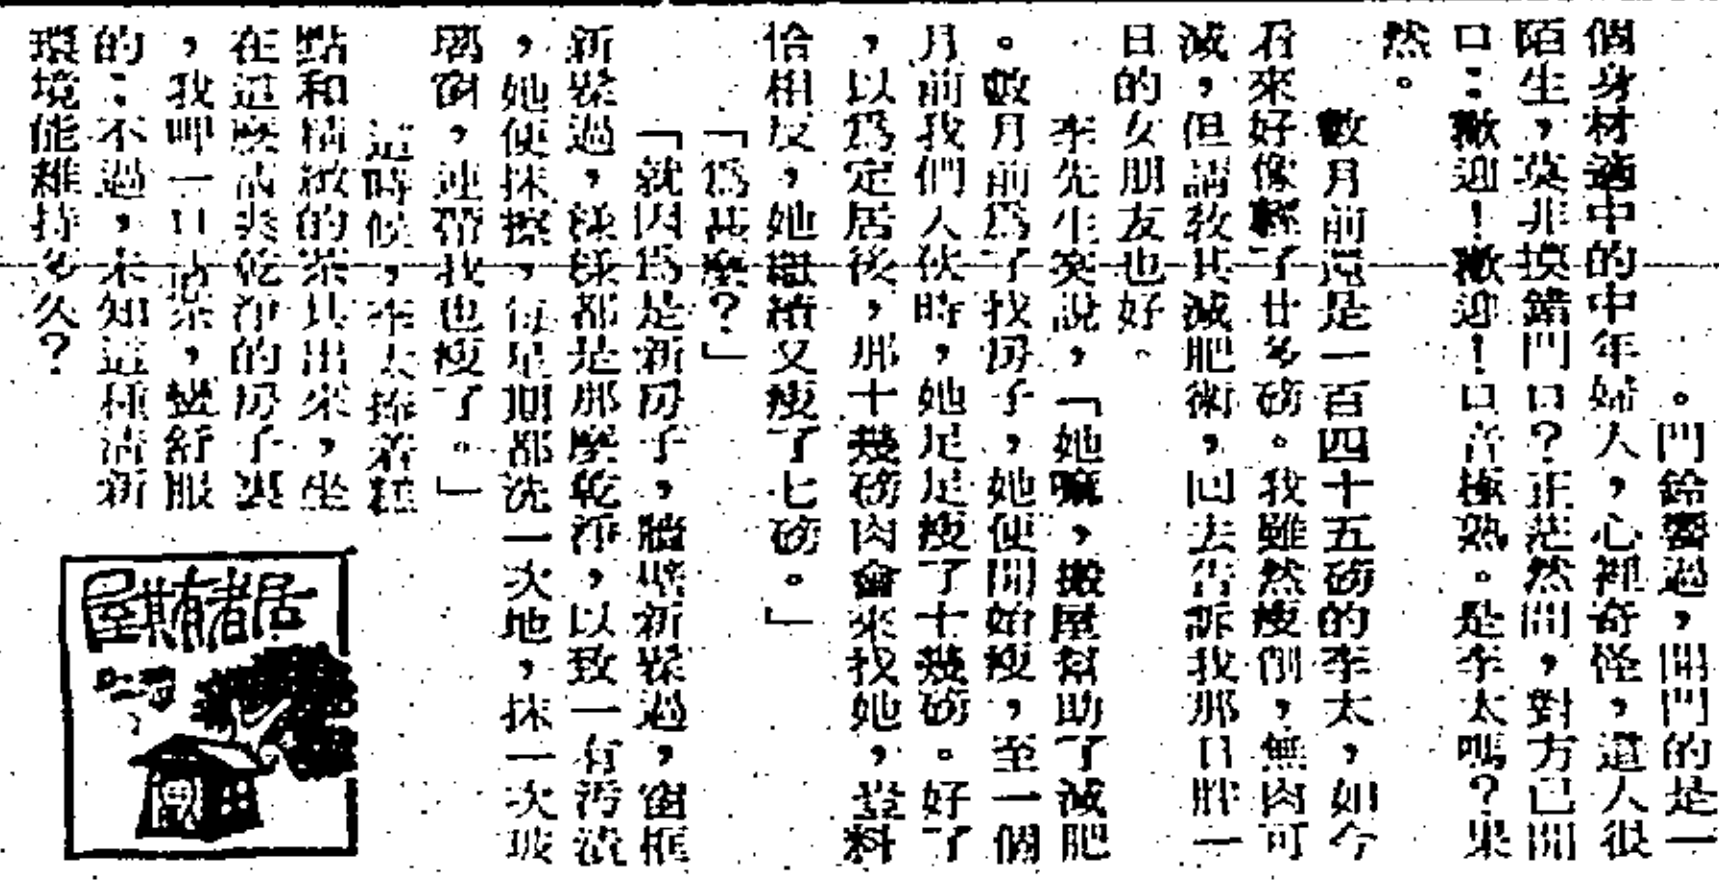 。門鈴響過，開門的是一
個身材適中的中年婦人，心裡奇怪，這人很
陌生，莫非摸錯門口？正茫然間，對方已開
口：歡迎！歡迎！口音極熟。是李太嗎？果
然。
數月前還是一百四十五磅的李太，如今
看來好像輕了廿多磅。我雖然瘦削，無肉可
減，但請敎其減肥術，回去告訴我那日胖一
日的女朋友也好。
李先生笑說，「她嘛，搬屋幫助了減肥
。數月前爲了找房子，她便開始瘦，至一個
月前我們入伙時，她足足瘦了十幾磅。好了
，以爲定居後，那十幾磅肉會來找她，豈料
恰相反，她繼續又瘦了七磅。」
「爲甚麼？」
「就因爲是新房子，牆壁新髹過，窗框
新髹過，樣樣都是那麼乾淨，以致一有汚漬
，她便抹擦，每星期都洗一次地，抹一次玻
璃窗，連帶我也瘦了。」
這時候，李太捧着糕
點和精緻的茶具出來，坐
在這麼淸爽乾淨的房子裏
，我呷一口茶，蠻舒服
的；不過，未知這種淸新
環境能維持多久？
居者有其屋